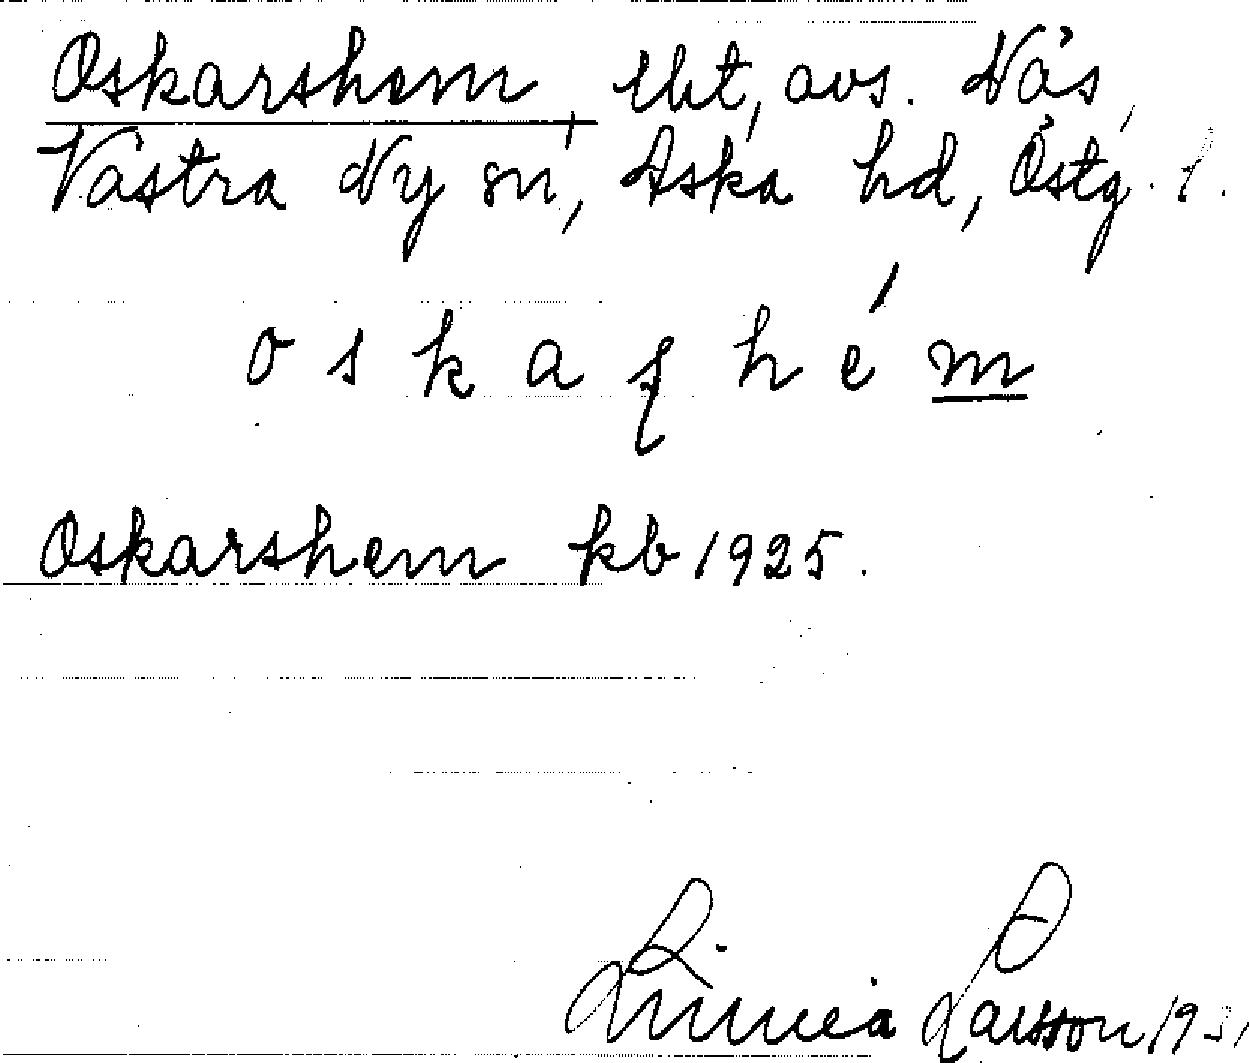 Oskarshem, lht, avs. Näs,
Västra Ny sn, Aska hd, Östg. l.
o s k a ʂ h é m
Oskarshem kb 1925.
Linnéa Larsson